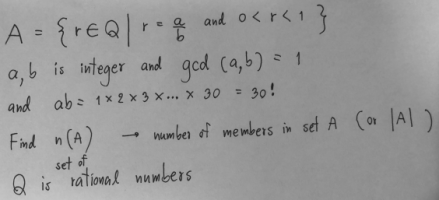 A = { r ∈ Q | r = a/b and 0 < r < 1 }
a, b is integer and gcd (a, b) = 1
and ab = 1 × 2 × 3 × ... × 30 = 30!
Find n(A) → number of members in set A (or |A|)
Q is set of rational numbers